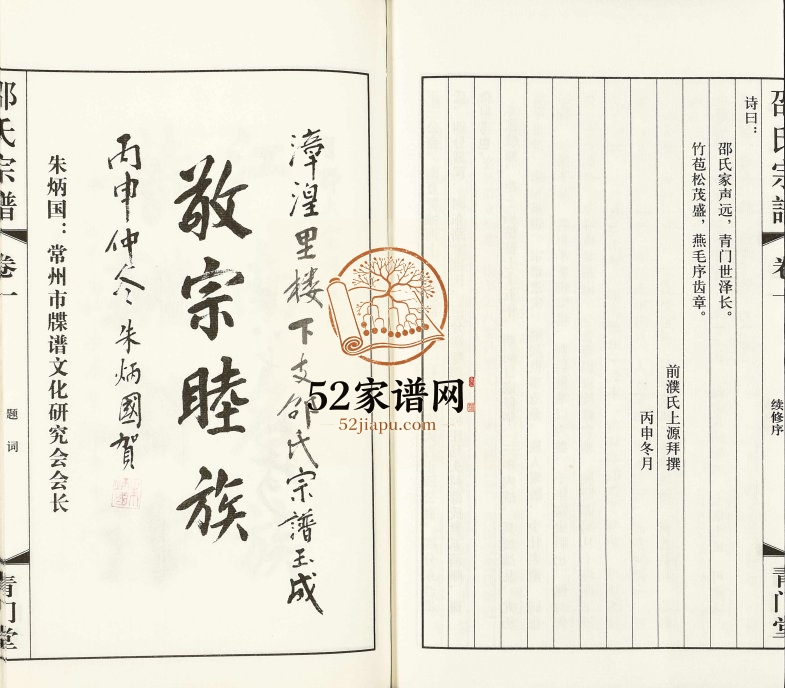 邵氏宗譜
卷一
续修序
青门堂
诗曰：
邵氏家声远，青门世泽长。
竹苞松茂盛，燕毛序齿章。
前濮氏上源拜撰
丙申冬月
漳湟里楼下支邵氏宗譜玉成
敬宗睦族
丙申仲冬朱炳國賀
朱炳国：常州市牒谱文化研究会会长
邵氏宗譜
卷一
题词
青门堂
52家谱网
52jiapu.com